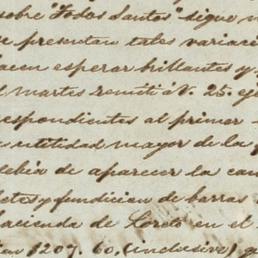 sobre "Todos Santos" sigue
se presentan tales variac
acen esperar brillantes y
l martes remití á V. 25. ej
respondientes al primer
utilidad mayor de la
debia de aparecer la can
etes y fundicion de barras
hacienda de Loreto en el
1207. 60. (inclusive) q